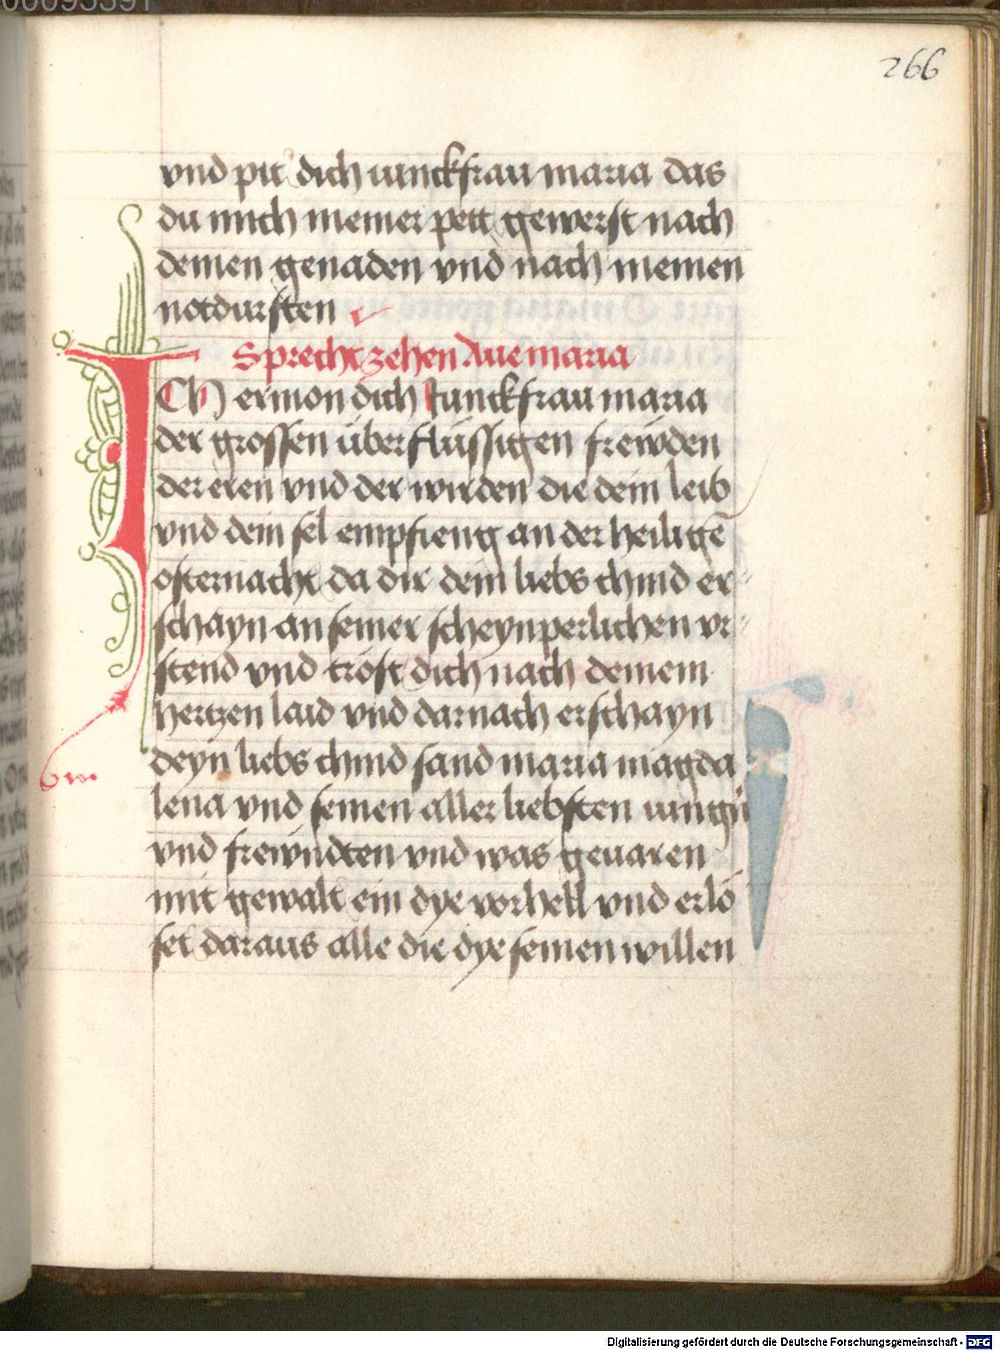 00095391
266
vnd pit dich iunckfrau maria das
du mich meiner pett gewerst nach
deinen genaden vnd nach meinen
notdurften
Sprecht zehen Aue maria
ICh ermon dich Junckfrau maria
der grossen überflüssigen frewden
der eren vnd der wirden die dein leib
vnd dein sel empfieng an der heiligē
osternacht da dir dein liebs chind er
schayn an seiner scheynperlichen vr
stend vnd tröst dich nach deinem
hertzen laid vnd darnach erschayn
deyn liebs chind sand maria magda
lena vnd seinen aller liebsten iungn̄
vnd frewndten vnd was geuaren
mit gewalt ein dye vorhell vnd erlö
set daraus alle die dye seinen willen
Digitalisierung gefördert durch die Deutsche Forschungsgemeinschaft - DFG